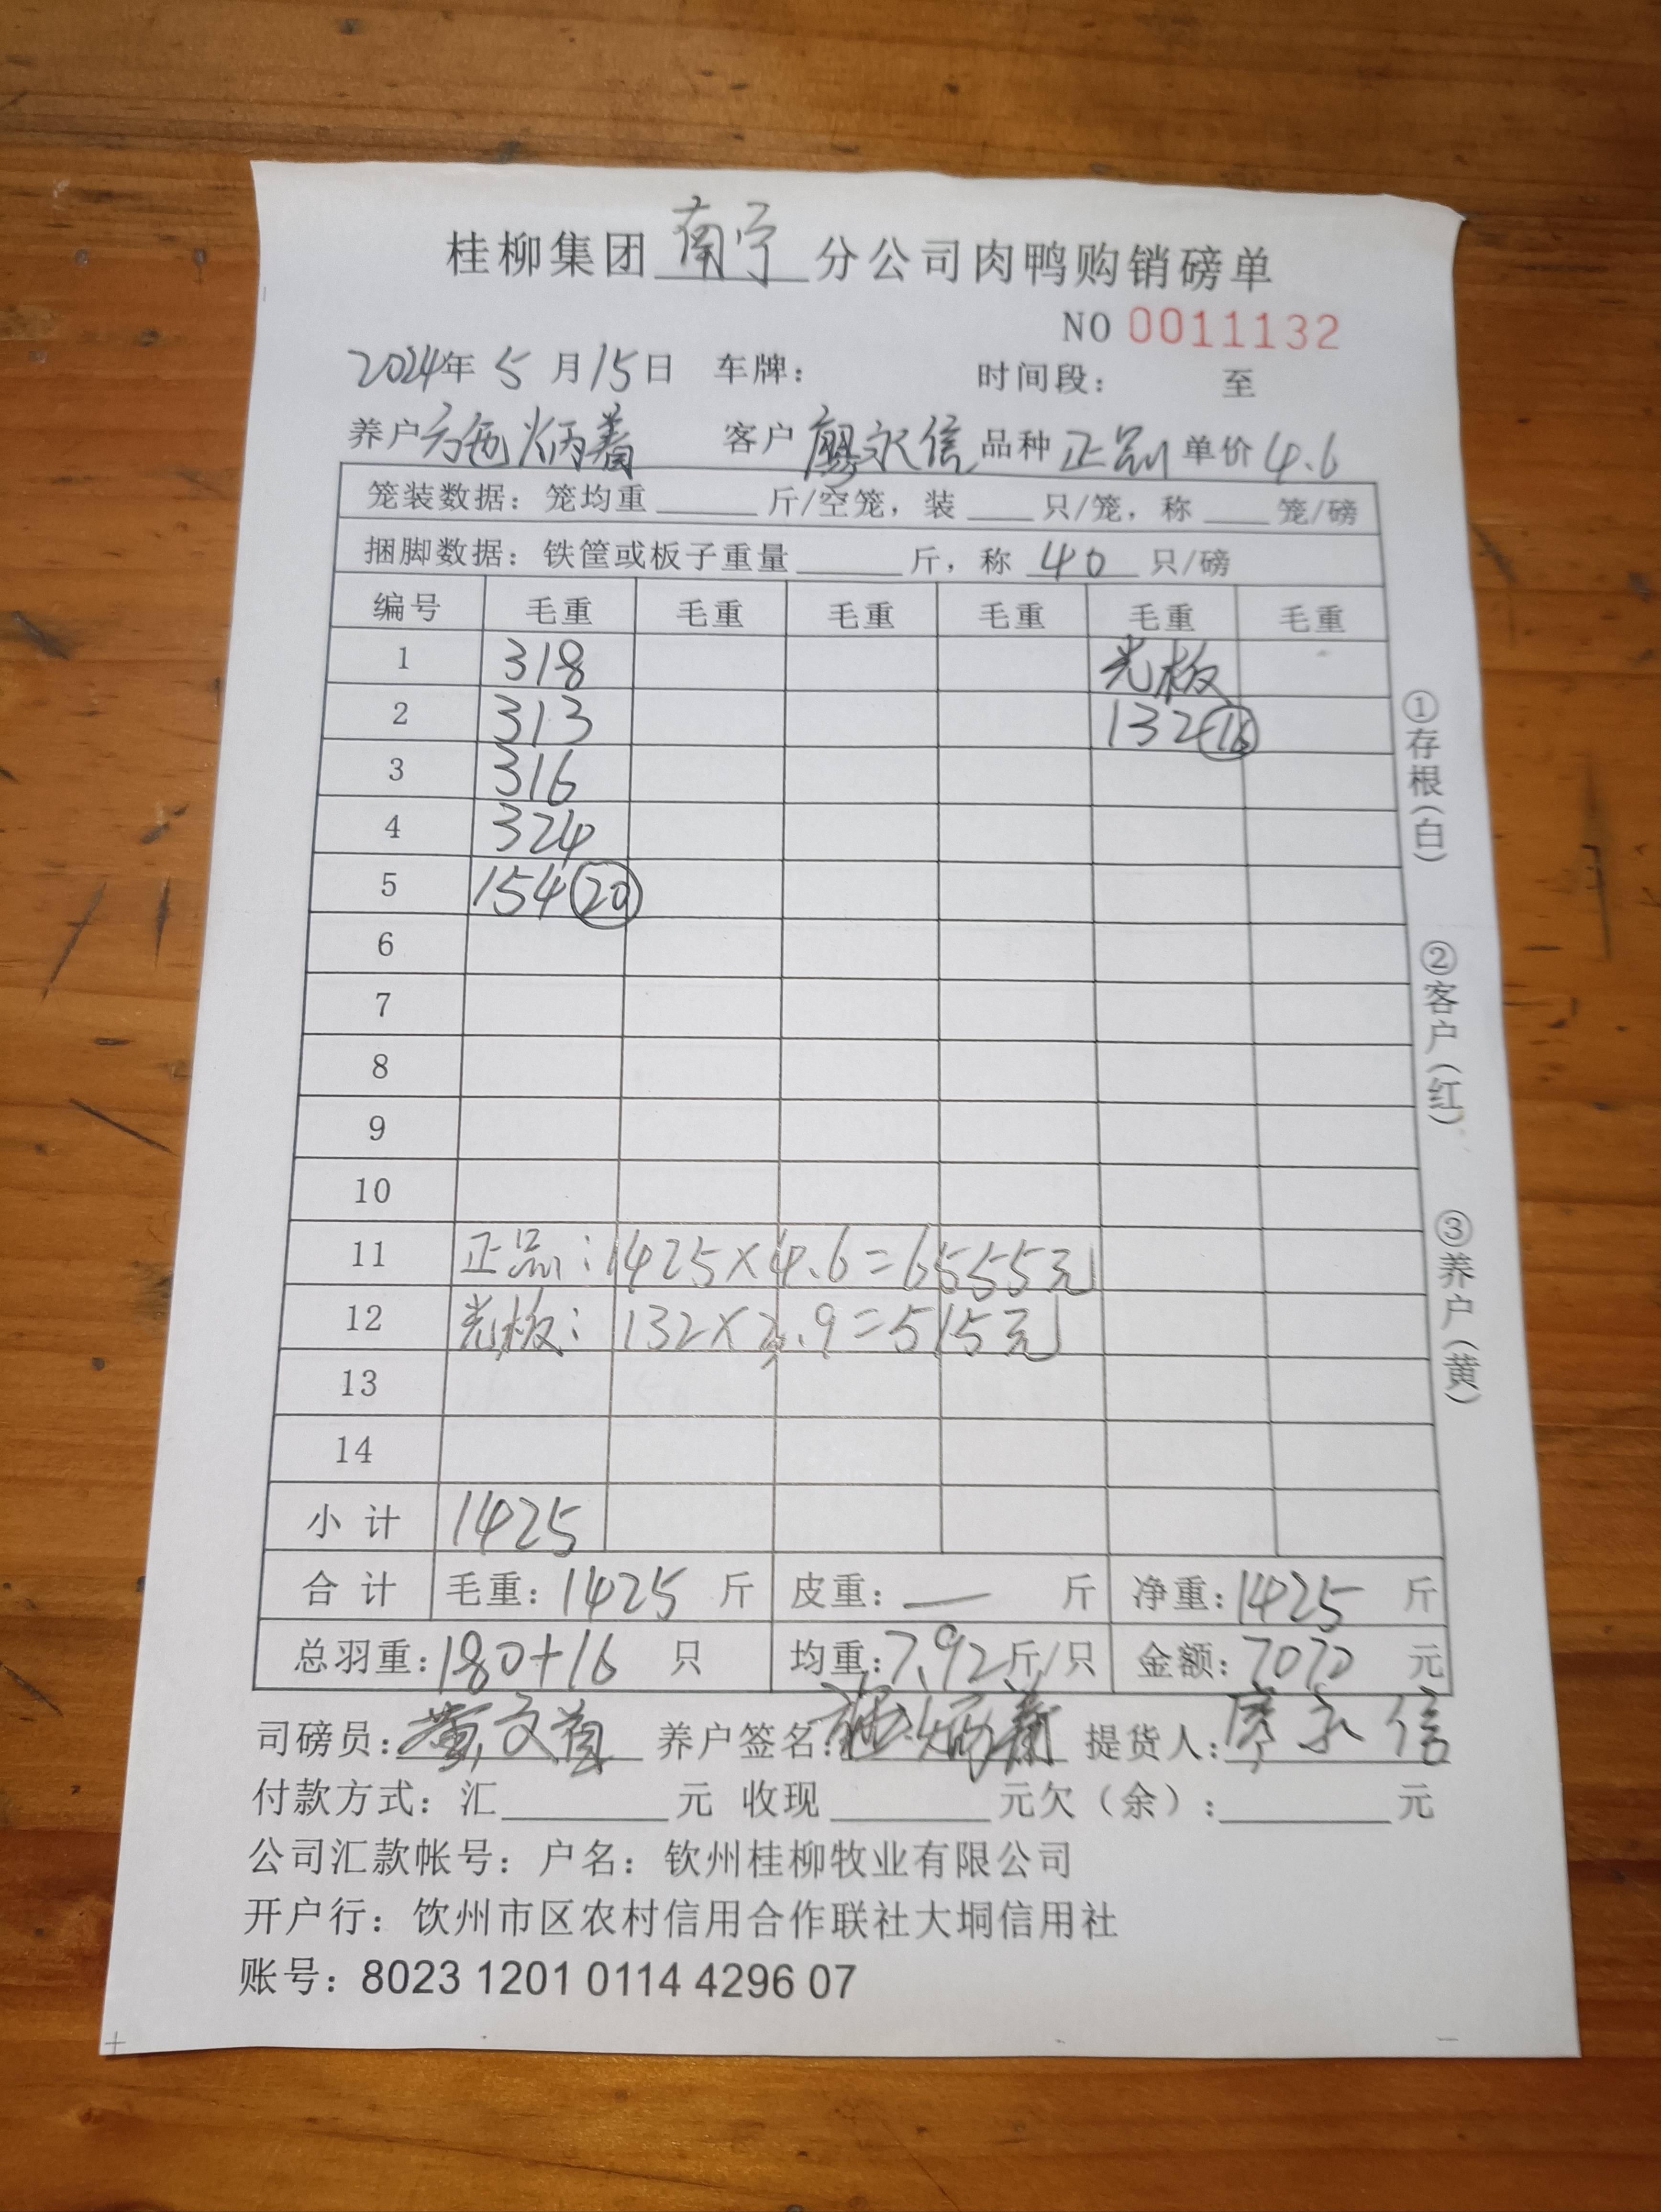 桂柳集团南宁分公司肉鸭购销磅单
NO 0011132
2024年5月15日 车牌: 时间段: 至
养户 炳着 客户 廖永信 品种 正品 单价 4.6
笼装数据: 笼均重 斤/空笼, 装 只/笼, 称 笼/磅
捆脚数据: 铁筐或板子重量 斤, 称 40 只/磅
编号 毛重 毛重 毛重 毛重 毛重 毛重
1 318 光板
2 313 132 16
3 316
4 324
5 154 20
6
7
8
9
10
11 正品: 1425×4.6=6555元
12 光板: 132×3.9=515元
13
14
小计 1425
合计 毛重: 1425 斤 皮重: — 斤 净重: 1425 斤
总羽重: 180+16 只 均重: 7.92 斤/只 金额: 7070 元
司磅员: 黄文 养户签名: 炳 提货人: 廖永信
付款方式: 汇 元 收现 元欠(余): 元
公司汇款帐号: 户名: 钦州桂柳牧业有限公司
开户行: 钦州市区农村信用合作联社大垌信用社
账号: 8023 1201 0114 4296 07
①存根(白)
②客户(红)
③养户(黄)